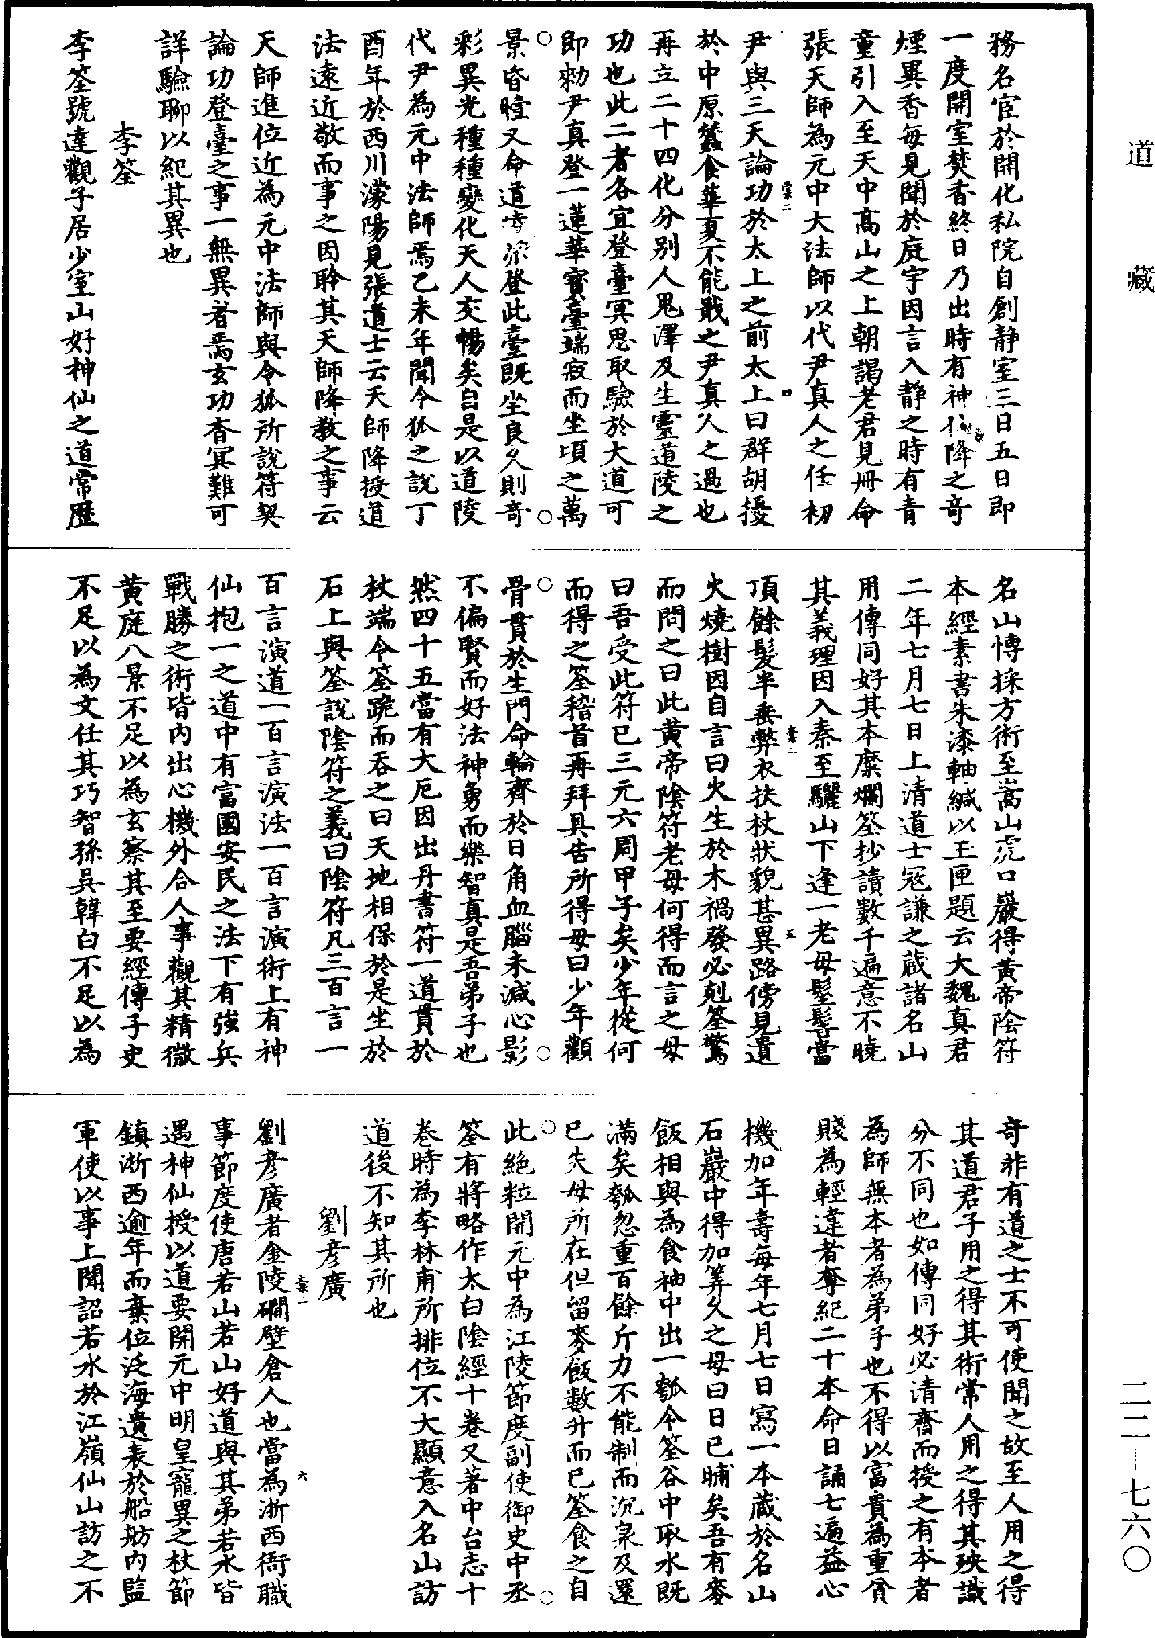 道藏
務名宦於開化私院自創靜室三日五日即
一度開室焚香終日乃出時有神仙降之奇
煙異香每見聞於庭宇因言入靜之時有青
童引入至天中高山之上朝謁老君見冊命
張天師為元中大法師以代尹真人之任初
尹與三天論功於太上之前太上曰群胡擾
於中原蠶食華夏不能戢之尹真人之過也
再立二十四化分別人鬼澤及生靈道陵之
功也此二者各宜登臺冥思取驗於大道可
即勑尹真登一蓮華寶臺端寂而坐頃之萬
景昏曀又命道陵登此臺既坐良久則奇
彩異光種種變化天人交暢矣自是以道陵
代尹為元中法師焉乙未年聞令狐之說丁
酉年於西川濛陽見張道士云天師降授道
法遠近敬而事之因聆其天師降教之事云
天師進位近為元中法師與令狐所說符契
論功登臺之事一無異者焉玄功杳冥難可
詳驗聊以紀其異也
李筌
李筌號達觀子居少室山好神仙之道常歷
名山博採方術至嵩山虎口巖得黃帝陰符
本經素書朱漆軸緘以玉匣題云大魏真君
二年七月七日上清道士寇謙之藏諸名山
用傳同好其本糜爛筌抄讀數千遍意不曉
其義理因入秦至驪山下逢一老母髽髻當
頂餘髮半垂弊衣扶杖狀貌甚異路傍見遺
火燒樹因自言曰火生於木禍發必剋筌驚
而問之曰此黃帝陰符老母何得而言之母
曰吾受此符已三元六周甲子矣少年從何
而得之筌稽首再拜具告所得母曰少年顴
骨貫於生門命輪齊於日角血腦未減心影
不偏賢而好法神勇而樂智真是吾弟子也
然四十五當有大厄因出丹書符一道貫於
杖端令筌跪而吞之曰天地相保於是坐於
石上與筌說陰符之義曰陰符凡三百言一
百言演道一百言演法一百言演術上有神
仙抱一之道中有富國安民之法下有強兵
戰勝之術皆內出心機外合人事觀其精微
黃庭八景不足以為玄察其至要經傳子史
不足以為文任其巧智孫吳韓白不足以為
奇非有道之士不可使聞之故至人用之得
其道君子用之得其術常人用之得其殃識
分不同也如傳同好必清齋而授之有本者
為師無本者為弟子也不得以富貴為重貧
賤為輕違者奪紀二十本命日誦七遍益心
機加年壽每年七月七日寫一本藏於名山
石巖中得加筭久之母曰日已晡矣吾有麥
飯相與為食袖中出一瓠令筌谷中取水既
滿矣瓠忽重百餘斤力不能制而沉泉及還
已失母所在但留麥飯數升而已筌食之自
此絕粒開元中為江陵節度副使御史中丞
筌有將略作太白陰經十卷又著中台志十
卷時為李林甫所排位不大顯意入名山訪
道後不知其所也
劉彥廣
劉彥廣者金陵磵壁倉人也嘗為浙西衙職
事節度使唐若山若山好道與其弟若水皆
遇神仙授以道要開元中明皇寵異之杖節
鎮浙西逾年而棄位泛海遺表於船舫內監
軍使以事上聞詔若水於江嶺仙山訪之不
二二—七六〇